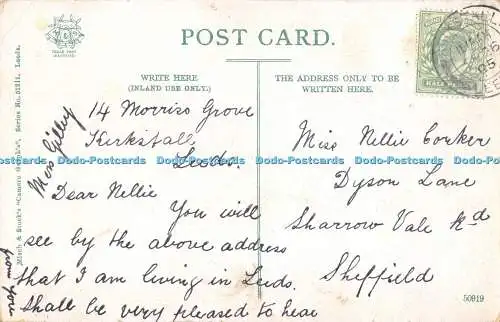 POST CARD.
WRITE HERE
(INLAND USE ONLY.)
THE ADDRESS ONLY TO BE
WRITTEN HERE.
HALF PENNY
14 Morriss Grove
Kirkstall
Leeds.
Dear Nellie
You will
see by the above address
that I am living in Leeds.
Shall be very pleased to hear
from you
Miss Gilley
Miss Nellie Corker
Dyson Lane
Sharrow Vale Rd
Sheffield
50919
Dodo-Postcards Dodo-Postcards Dodo-Postcards Dodo-Postcards Dodo-Postcards